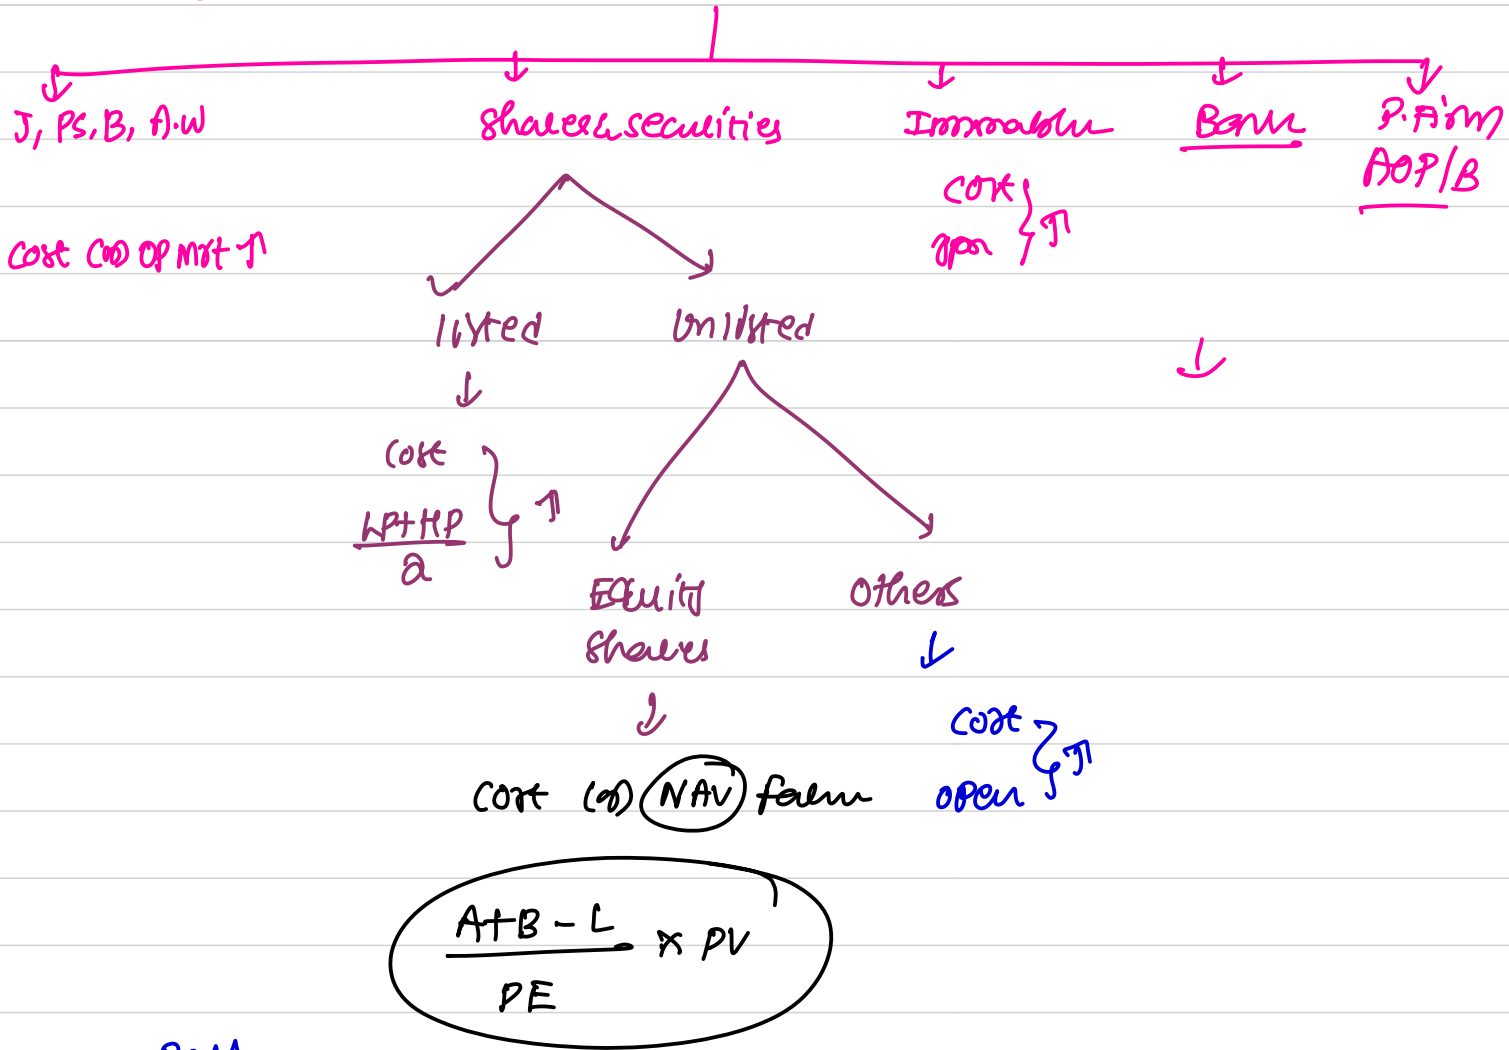 J, PS, B, A.W
Shares & securities
Immovable
Bank
P. Firm
AOP/B
Cost (or) OP Mrt ↑
Cost
open
↑
listed
Unlisted
Cost
LP+HP
2
↑
Equity
Shares
Others
Cost
open
↑
Cost (or) NAV form
A+B-L
PE
× PV